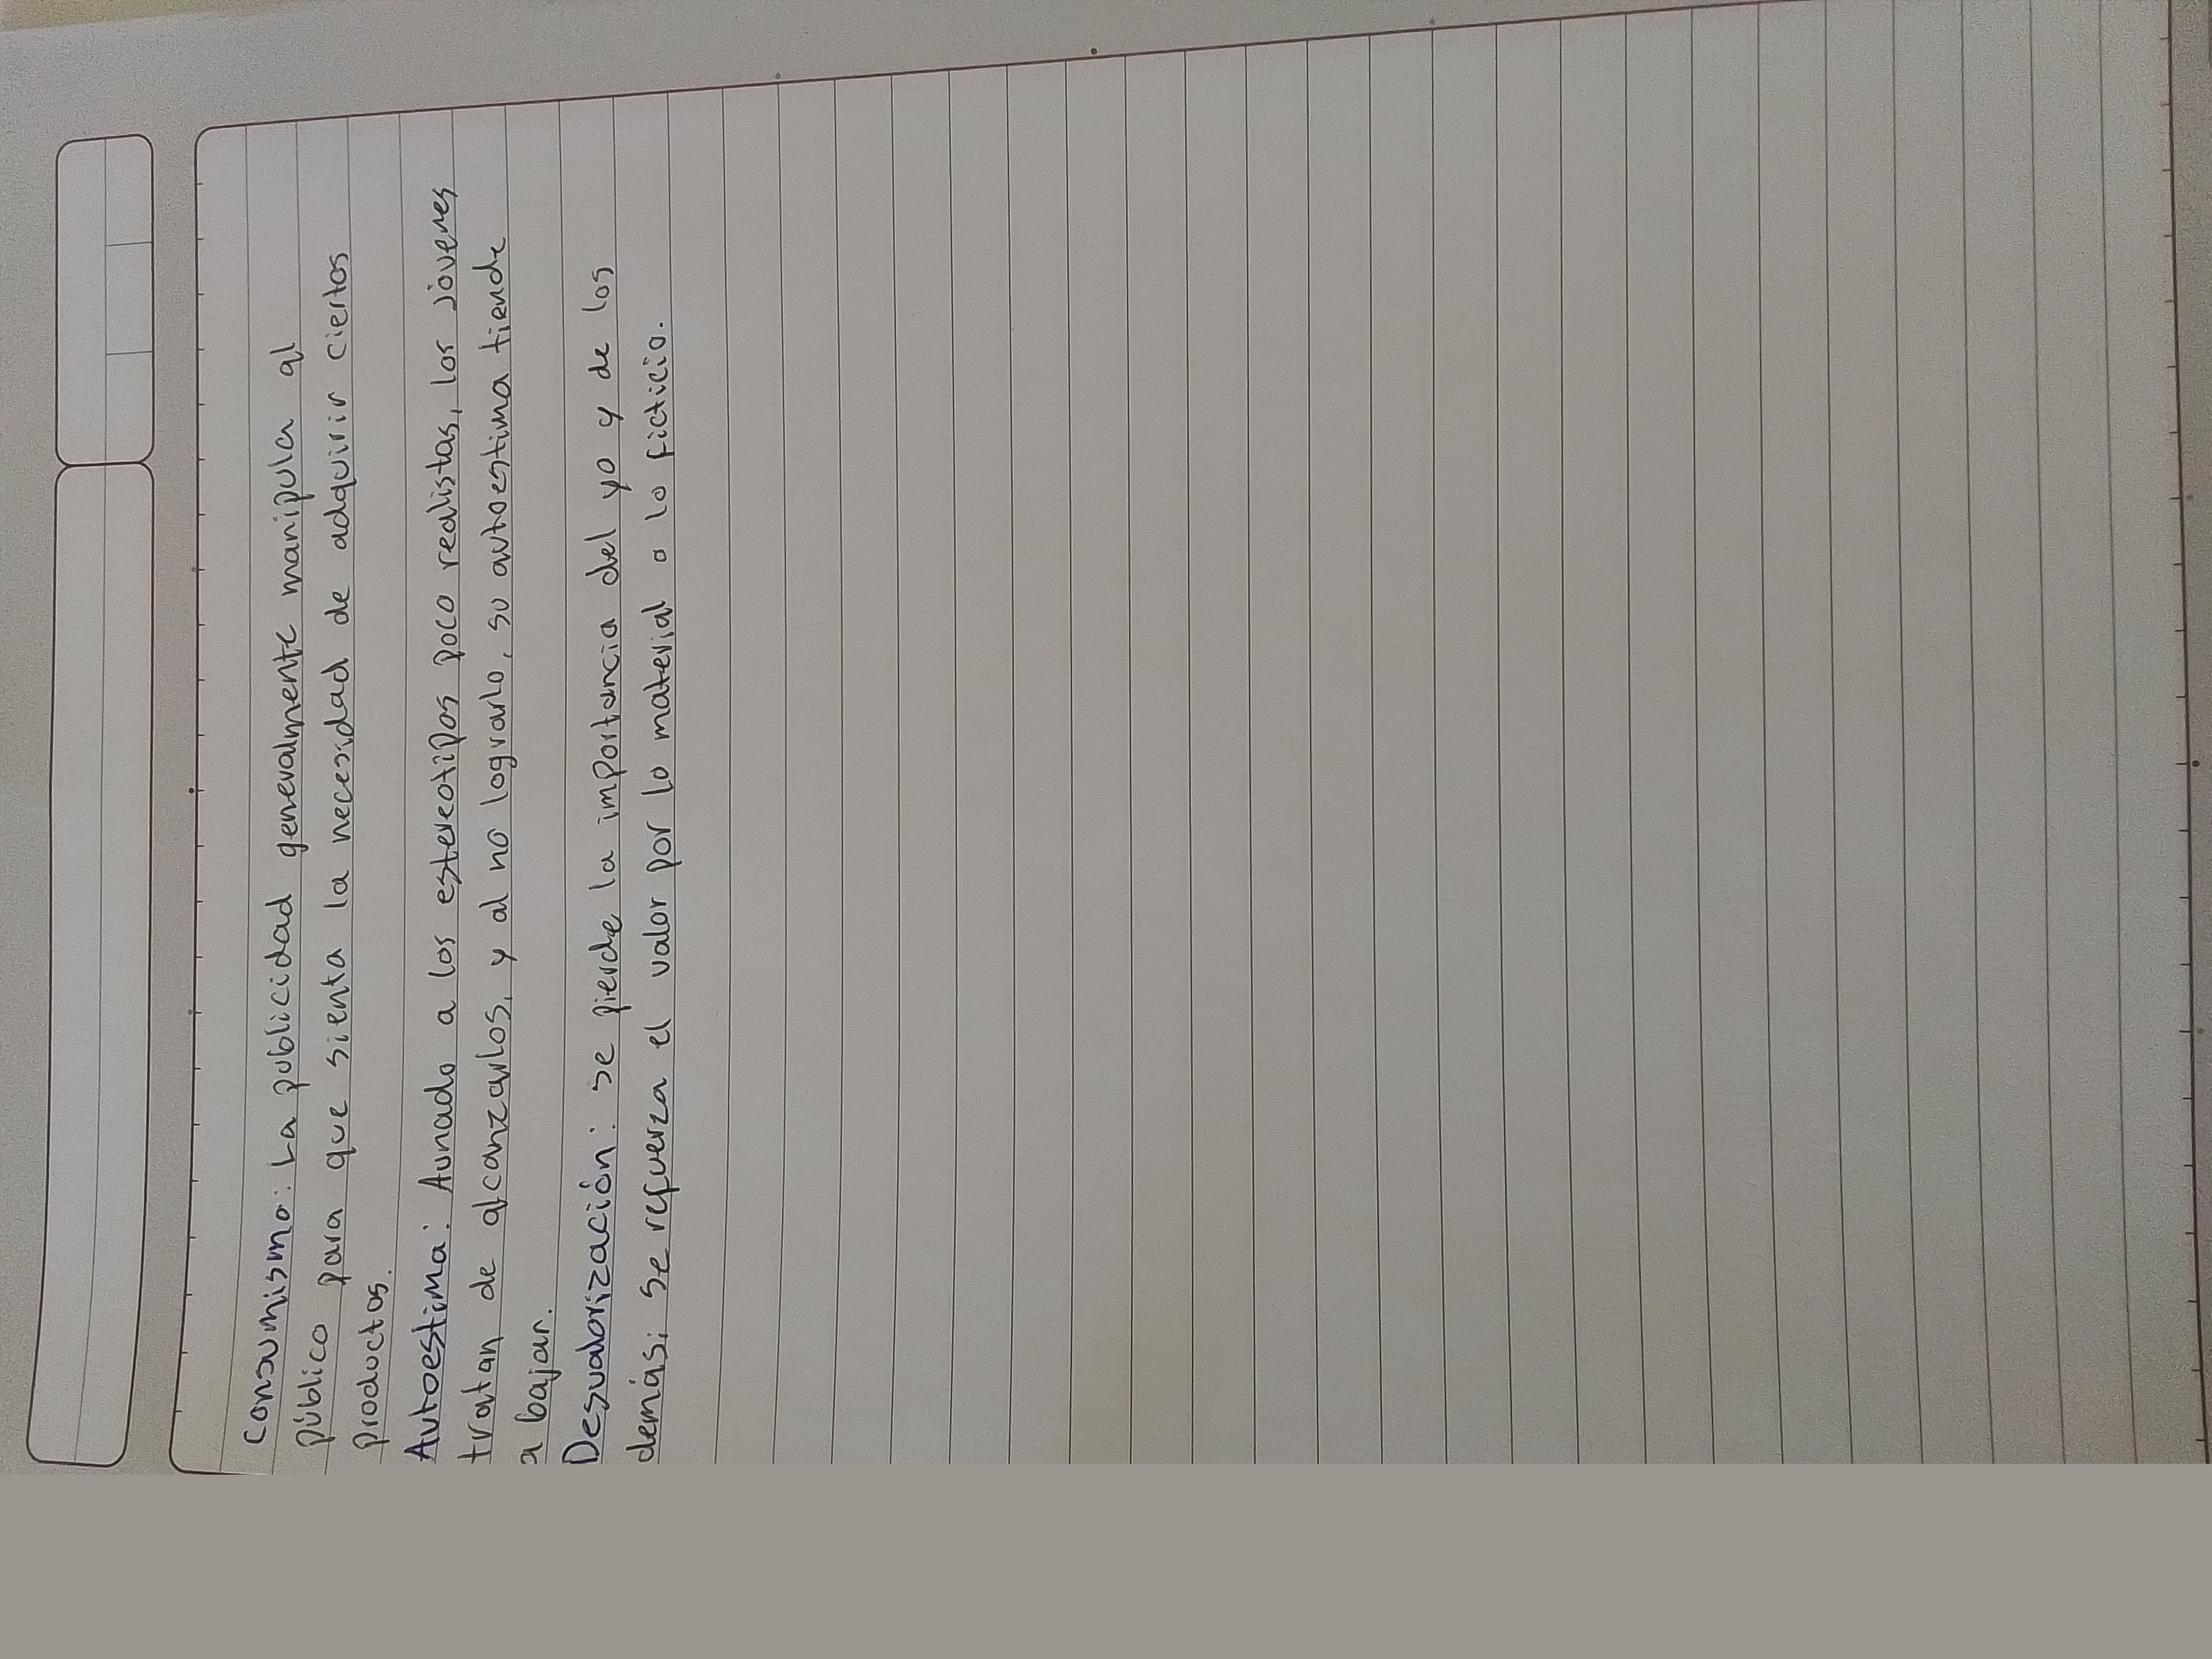 Consumismo: La publicidad generalmente manipula al
público para que sienta la necesidad de adquirir ciertos
productos.
Autoestima: Aunado a los estereotipos poco realistas, los jóvenes
tratan de alcanzarlos, y al no lograrlo, su autoestima tiende
a bajar.
Desvalorización: se pierde la importancia del yo y de los
demás; se refuerza el valor por lo material o lo ficticio.